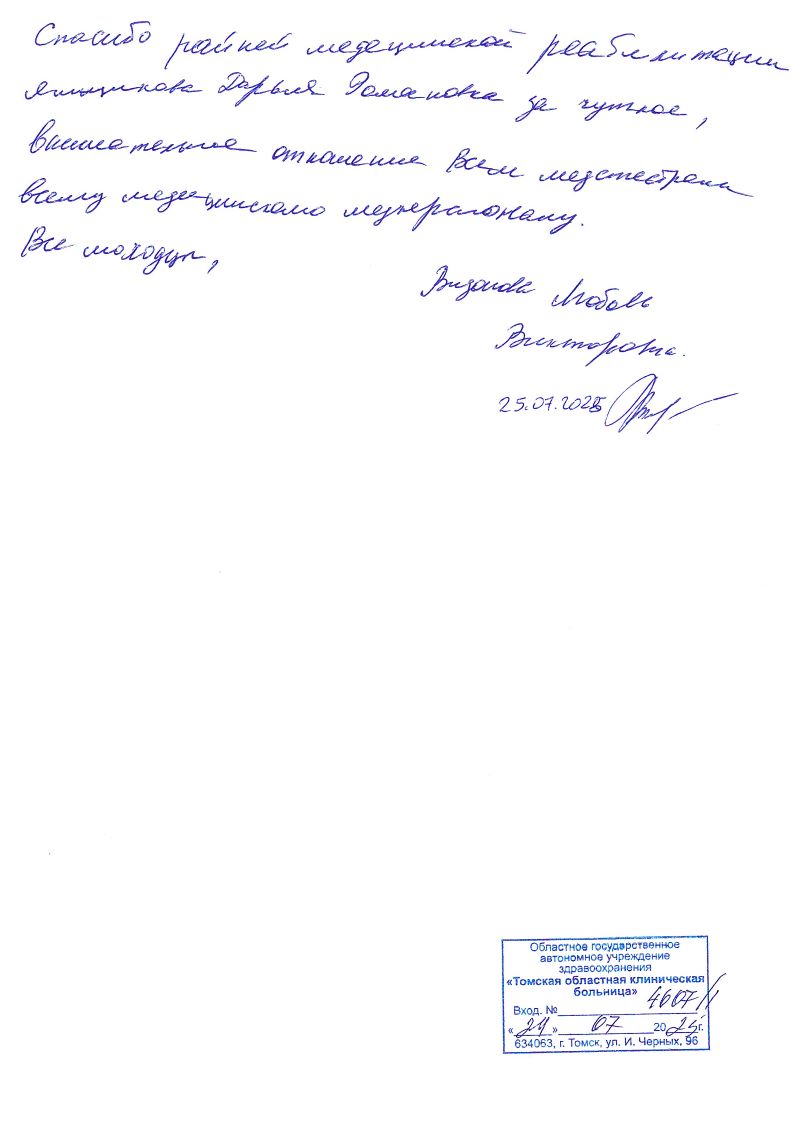 Спасибо райней медецинской реаблитации
Дарья Романовна за чуткое,
внимательное отношение всем медсестрам
всему медецинскомо медперсоналу.
Все молодцы,
Любовь
Викторовна.
25.07.2025
Областное государственное
автономное учреждение
здравоохранения
«Томская областная клиническая
больница»
Вход. № 4607/1
«24» 07 2025г.
634063, г. Томск, ул. И. Черных, 96